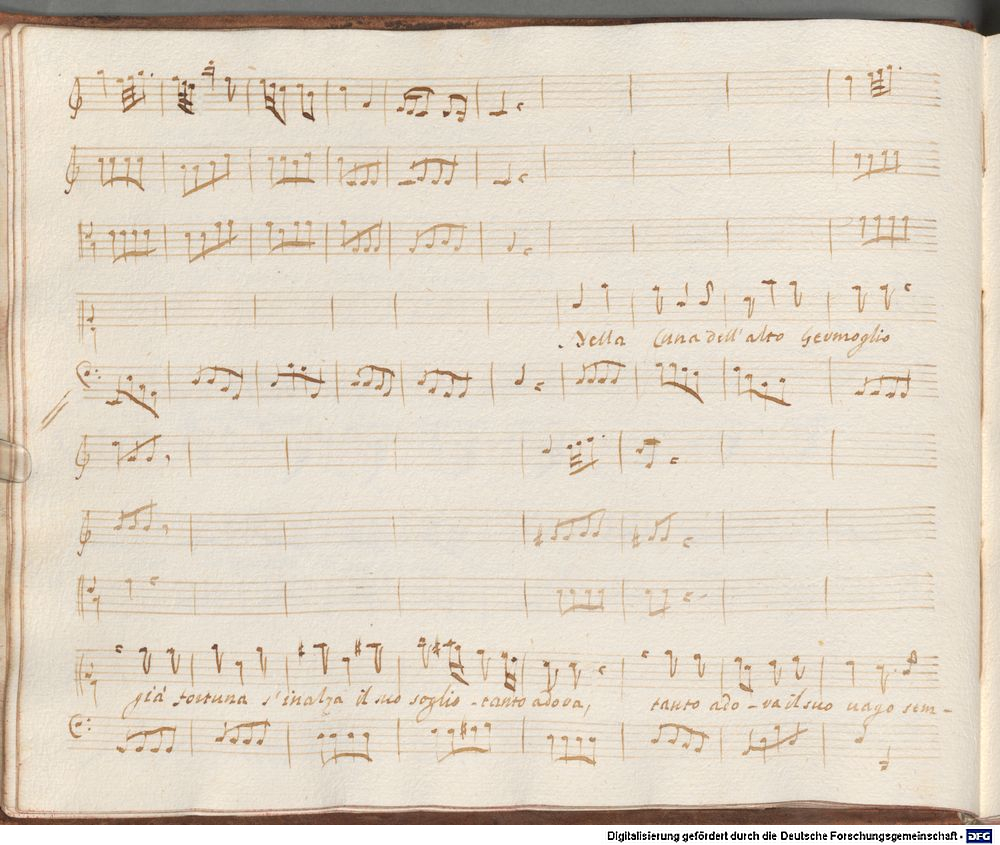 Nella Cuna dell'alto Germoglio
già fortuna s'inalza il suo soglio - tanto adora, tanto ado - ra il suo vago sem -
Digitalisierung gefördert durch die Deutsche Forschungsgemeinschaft - DFG